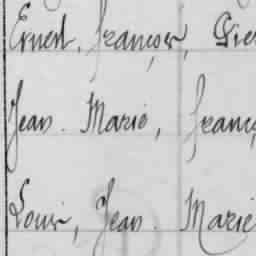 Ernest, François, Pier
Jean. Marie, Franç
Louis, Jean. Marie